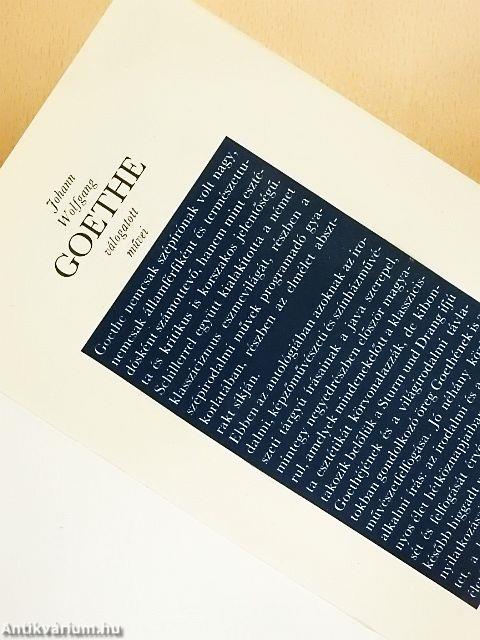 Johann
Wolfgang
GOETHE
válogatott
művei
Goethe nemcsak szépírónak volt nagy,
nemcsak államférfiként és természettu-
dósként számottevő, hanem mint eszté-
ta és kritikus is korszakos jelentőségű.
Schillerrel együtt kialakította a német
klasszicizmus eszmevilágát, részben a
szépirodalmi művek programadó gya-
korlatában, részben az elmélet absz-
trakt síkján.
Ebben az antológiában azoknak az iro-
dalmi, képzőművészeti és színházművé-
szeti tárgyú írásainak a java szerepel
mintegy negyedrészben először magya-
rul, amelyek mindenekelőtt a klasszi
ta esztétikát körvonalazzák, de kibon-
takozik belőlük a Sturm und Drang ifjú
Goethéjének és a világirodalmi távla-
tokban gondolkozó öreg Goethének is
művészetfelfogása. Jó
alkalmi írás az irodalmi és a
sét és felfogását
nyos élet hétköznapjaiban
később függött
nyilatkozás
tet, a
élet
Antikvárium.hu